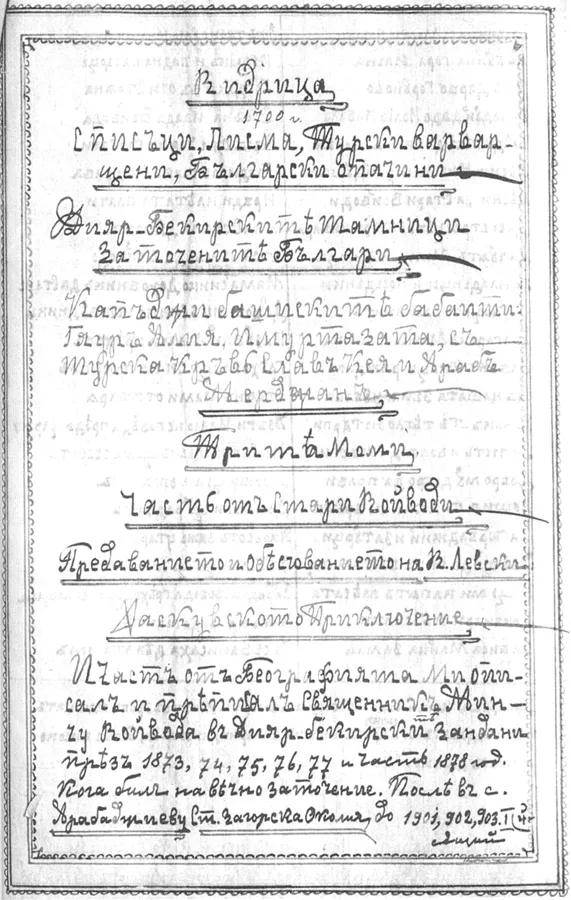 Видрица
1700 г.
Списъци, Писма, Турски варвар-
щени, Български отачини
Дияр-Бекирскитѣ тамници
Заточенитѣ Българи
Капѫджи башискитѣ бабаити
Гяуръ Алия, и муртазата, съ
Турска кръвь Славъ Кея и Арабъ
Мерджанъ
Тритѣ Моми
Часть отъ Стари Войводи
Предаванието и обѣсванието на В. Левски
Даскувското Приключение
И Часть отъ Географията ми опи-
салъ и прѣписалъ Священникъ Мин-
чу Койвода въ Дияр-бекирскитѣ Зандани
прѣзъ 1873, 74, 75, 76, 77 и часть 1878 год.
Кога билъ на вѣчно заточение. Послѣ въ с.
Арабаджиеву Ст. Загорска Околия, до 1901, 902, 903. II
сѫщий